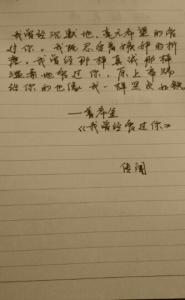 我曾经沉默地,毫无希望的爱
过你。我既忍受着嫉妒的折
磨,我曾经那样真诚那样
温柔地爱过你,愿上帝赐
给你的也像我一样坚贞如
——普希金
《我曾经爱过你》